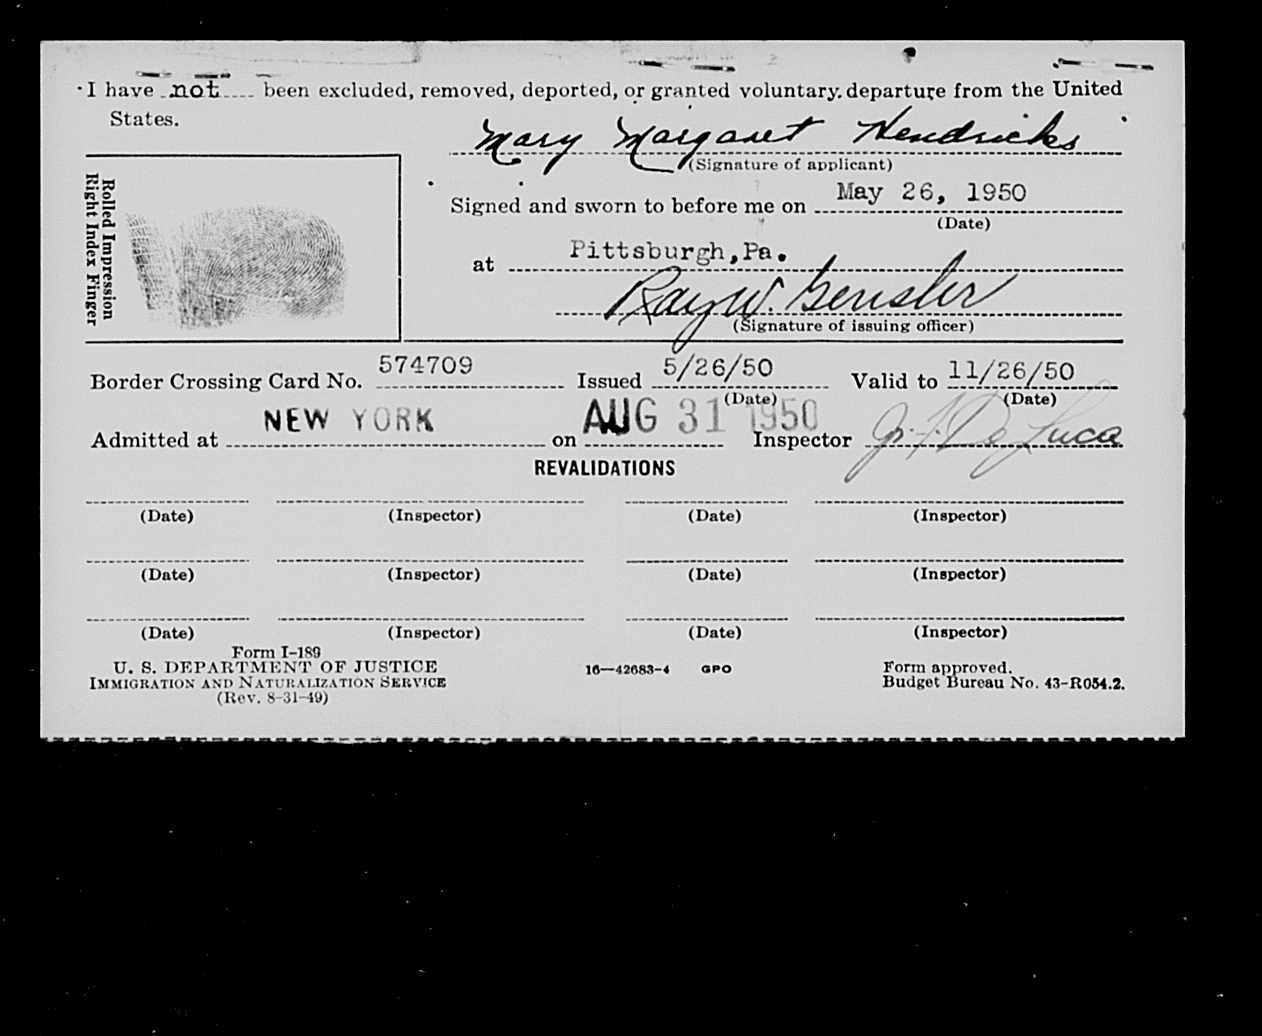 I have not been excluded, removed, deported, or granted voluntary departure from the United
States.
Mary Margaret Hendricks
(Signature of applicant)
Rolled Impression
Right Index Finger
Signed and sworn to before me on May 26, 1950
(Date)
at Pittsburgh, Pa.
Ray W. Gensler
(Signature of issuing officer)
Border Crossing Card No. 574709 Issued 5/26/50 Valid to 11/26/50
(Date) (Date)
Admitted at NEW YORK on AUG 31 1950 Inspector J. F. De Luca
REVALIDATIONS
(Date) (Inspector) (Date) (Inspector)
(Date) (Inspector) (Date) (Inspector)
(Date) (Inspector) (Date) (Inspector)
Form I-189
U. S. DEPARTMENT OF JUSTICE 16—42683-4 GPO Form approved.
IMMIGRATION AND NATURALIZATION SERVICE Budget Bureau No. 43-R054.2.
(Rev. 8-31-49)